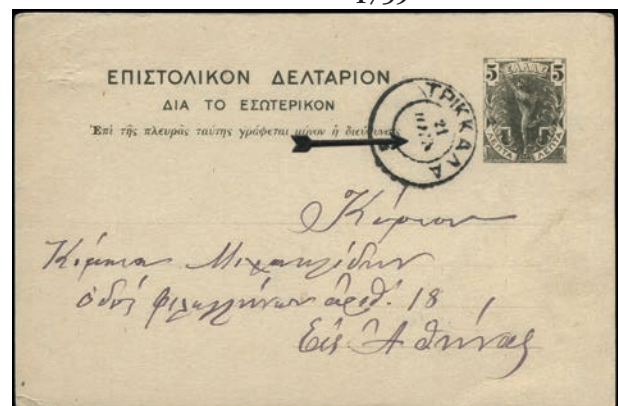 ΕΠΙΣΤΟΛΙΚΟΝ ΔΕΛΤΑΡΙΟΝ
ΔΙΑ ΤΟ ΕΣΩΤΕΡΙΚΟΝ
Ἐπὶ τῆς πλευρᾶς ταύτης γράφεται μόνον ἡ διεύθυνσις
ΤΡΙΚΚΑΛΑ
21
5 ΕΛΛΑΣ 5
ΛΕΠΤΑ ΛΕΠΤΑ
Κύριον
Μιχαηλίδην
ὁδός φιλελλήνων ἀριθ. 18
Εἰς Ἀθήνας